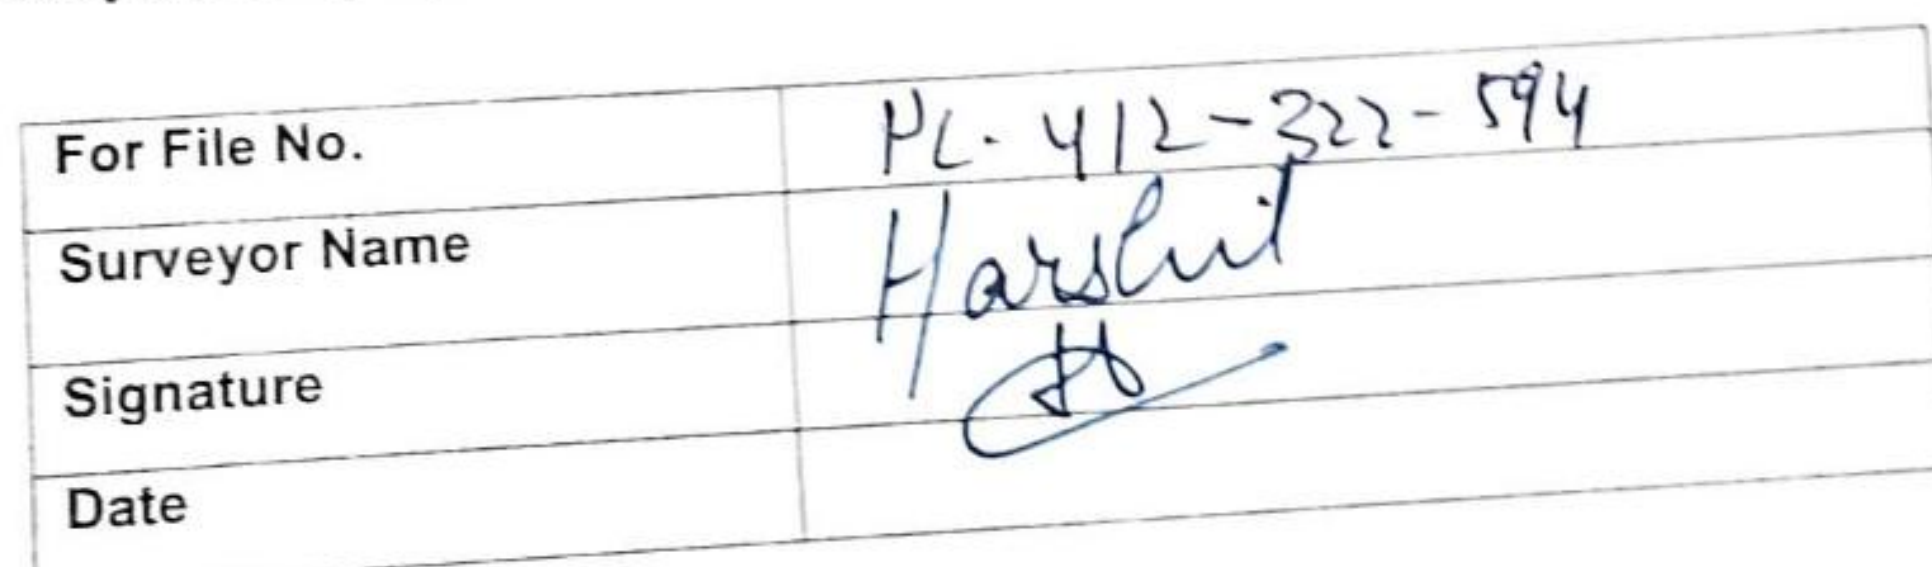 For File No. PL-412-322-594
Surveyor Name Harshit
Signature
Date